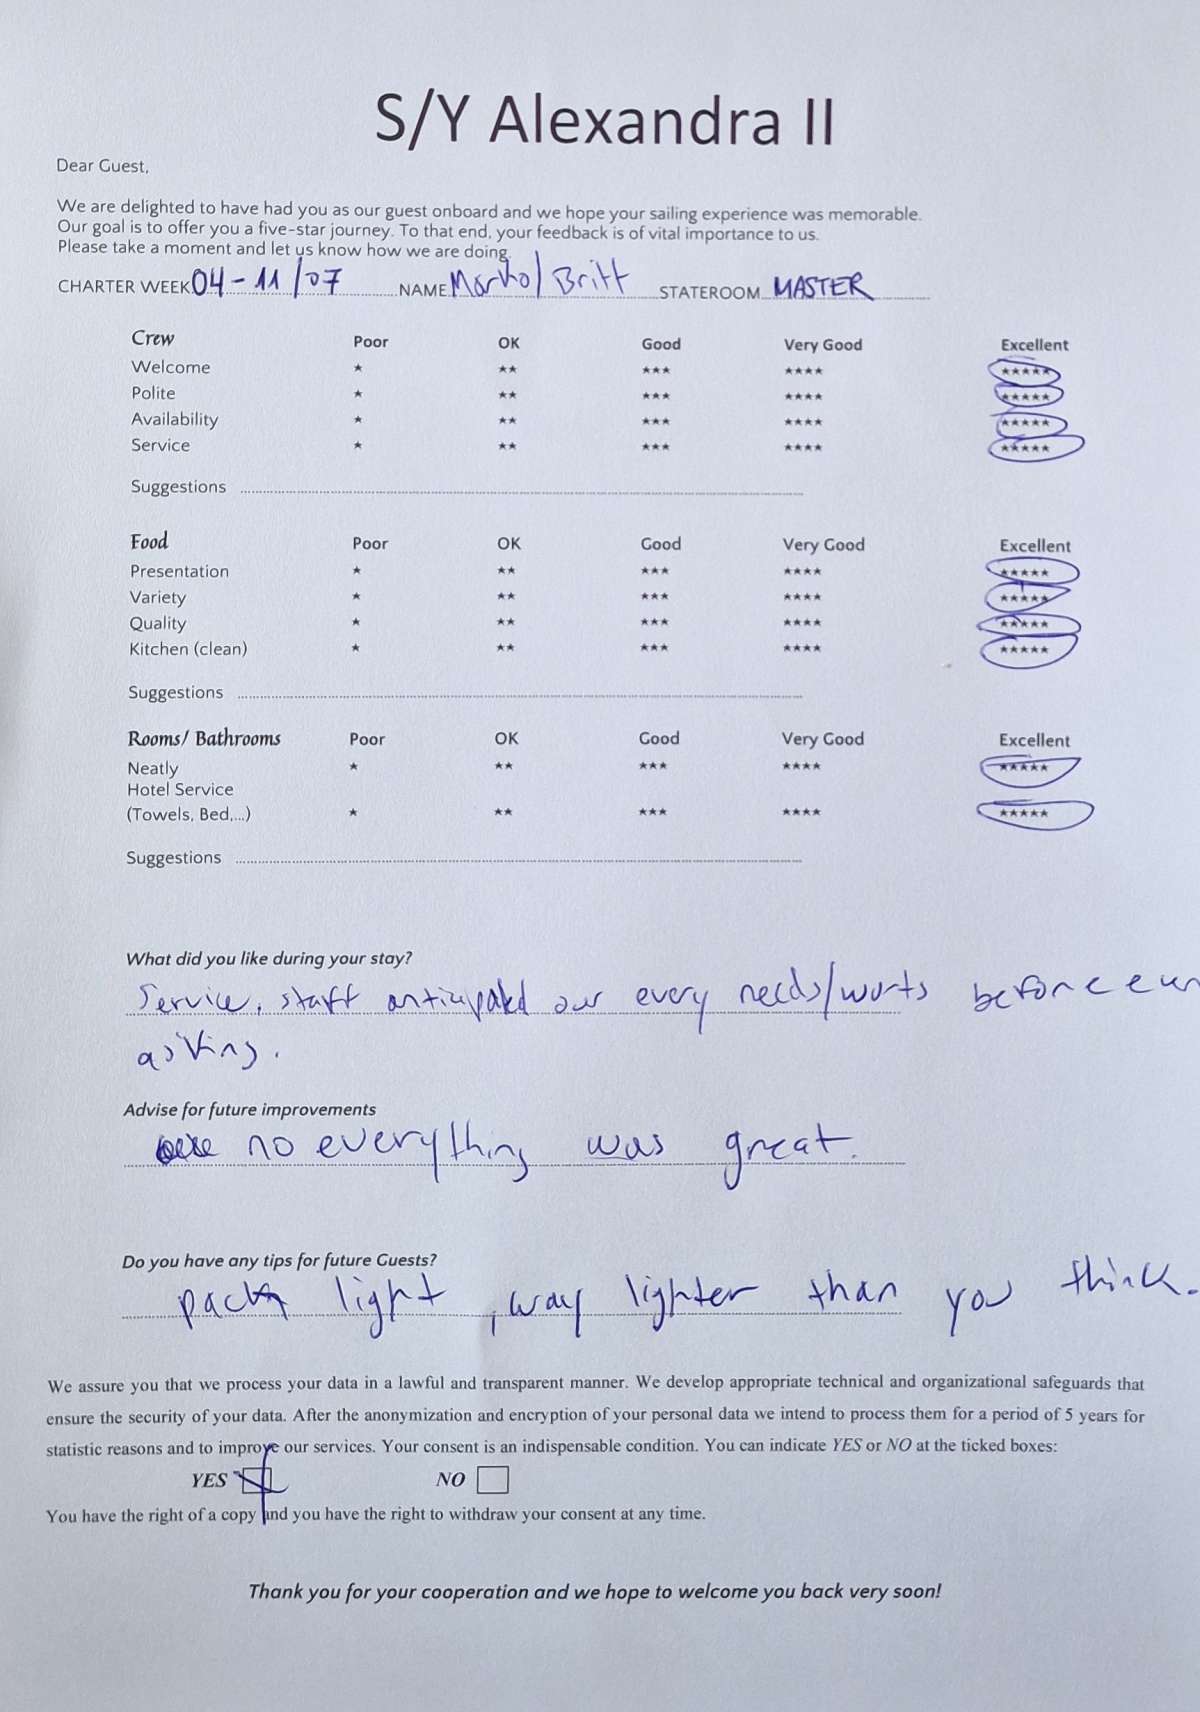 S/Y Alexandra II
Dear Guest,
We are delighted to have had you as our guest onboard and we hope your sailing experience was memorable.
Our goal is to offer you a five-star journey. To that end, your feedback is of vital importance to us.
Please take a moment and let us know how we are doing.
CHARTER WEEK 04-11/07 NAME / Britt STATEROOM MASTER
Crew Poor OK Good Very Good Excellent
Welcome ★ ★★ ★★★ ★★★★ ★★★★★
Polite ★ ★★ ★★★ ★★★★ ★★★★★
Availability ★ ★★ ★★★ ★★★★ ★★★★★
Service ★ ★★ ★★★ ★★★★ ★★★★★
Suggestions
Food Poor OK Good Very Good Excellent
Presentation ★ ★★ ★★★ ★★★★ ★★★★★
Variety ★ ★★ ★★★ ★★★★ ★★★★★
Quality ★ ★★ ★★★ ★★★★ ★★★★★
Kitchen (clean) ★ ★★ ★★★ ★★★★ ★★★★★
Suggestions
Rooms/ Bathrooms Poor OK Good Very Good Excellent
Neatly ★ ★★ ★★★ ★★★★ ★★★★★
Hotel Service
(Towels, Bed,...) ★ ★★ ★★★ ★★★★ ★★★★★
Suggestions
What did you like during your stay?
Service, staff anticipated our every needs/wants before even
asking.
Advise for future improvements
no everything was great.
Do you have any tips for future Guests?
pack light, way lighter than you think.
We assure you that we process your data in a lawful and transparent manner. We develop appropriate technical and organizational safeguards that
ensure the security of your data. After the anonymization and encryption of your personal data we intend to process them for a period of 5 years for
statistic reasons and to improve our services. Your consent is an indispensable condition. You can indicate YES or NO at the ticked boxes:
YES NO
You have the right of a copy and you have the right to withdraw your consent at any time.
Thank you for your cooperation and we hope to welcome you back very soon!